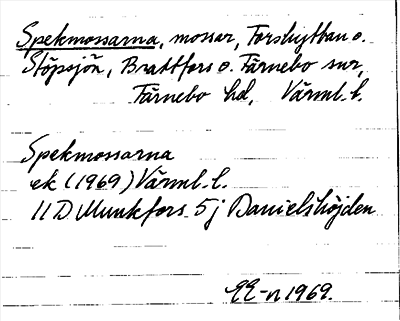 Spekmossarna, mossar, Forshyttan o.
Stöpsjön, Brattfors o. Färnebo snr,
Färnebo hd, Värml. l.
Spekmossarna
ek (1969) Värml. l.
11D Munkfors 5j Danielshöjden
EE-n 1969.